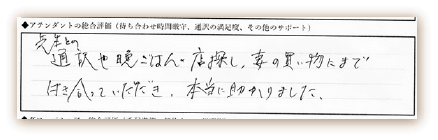 ◆アテンダントの総合評価（待ち合わせ時間厳守、通訳の満足度、その他のサポート）
先生との
通訳や晩ごはんの店探し、妻の買い物にまで
付き合っていただき、本当に助かりました。